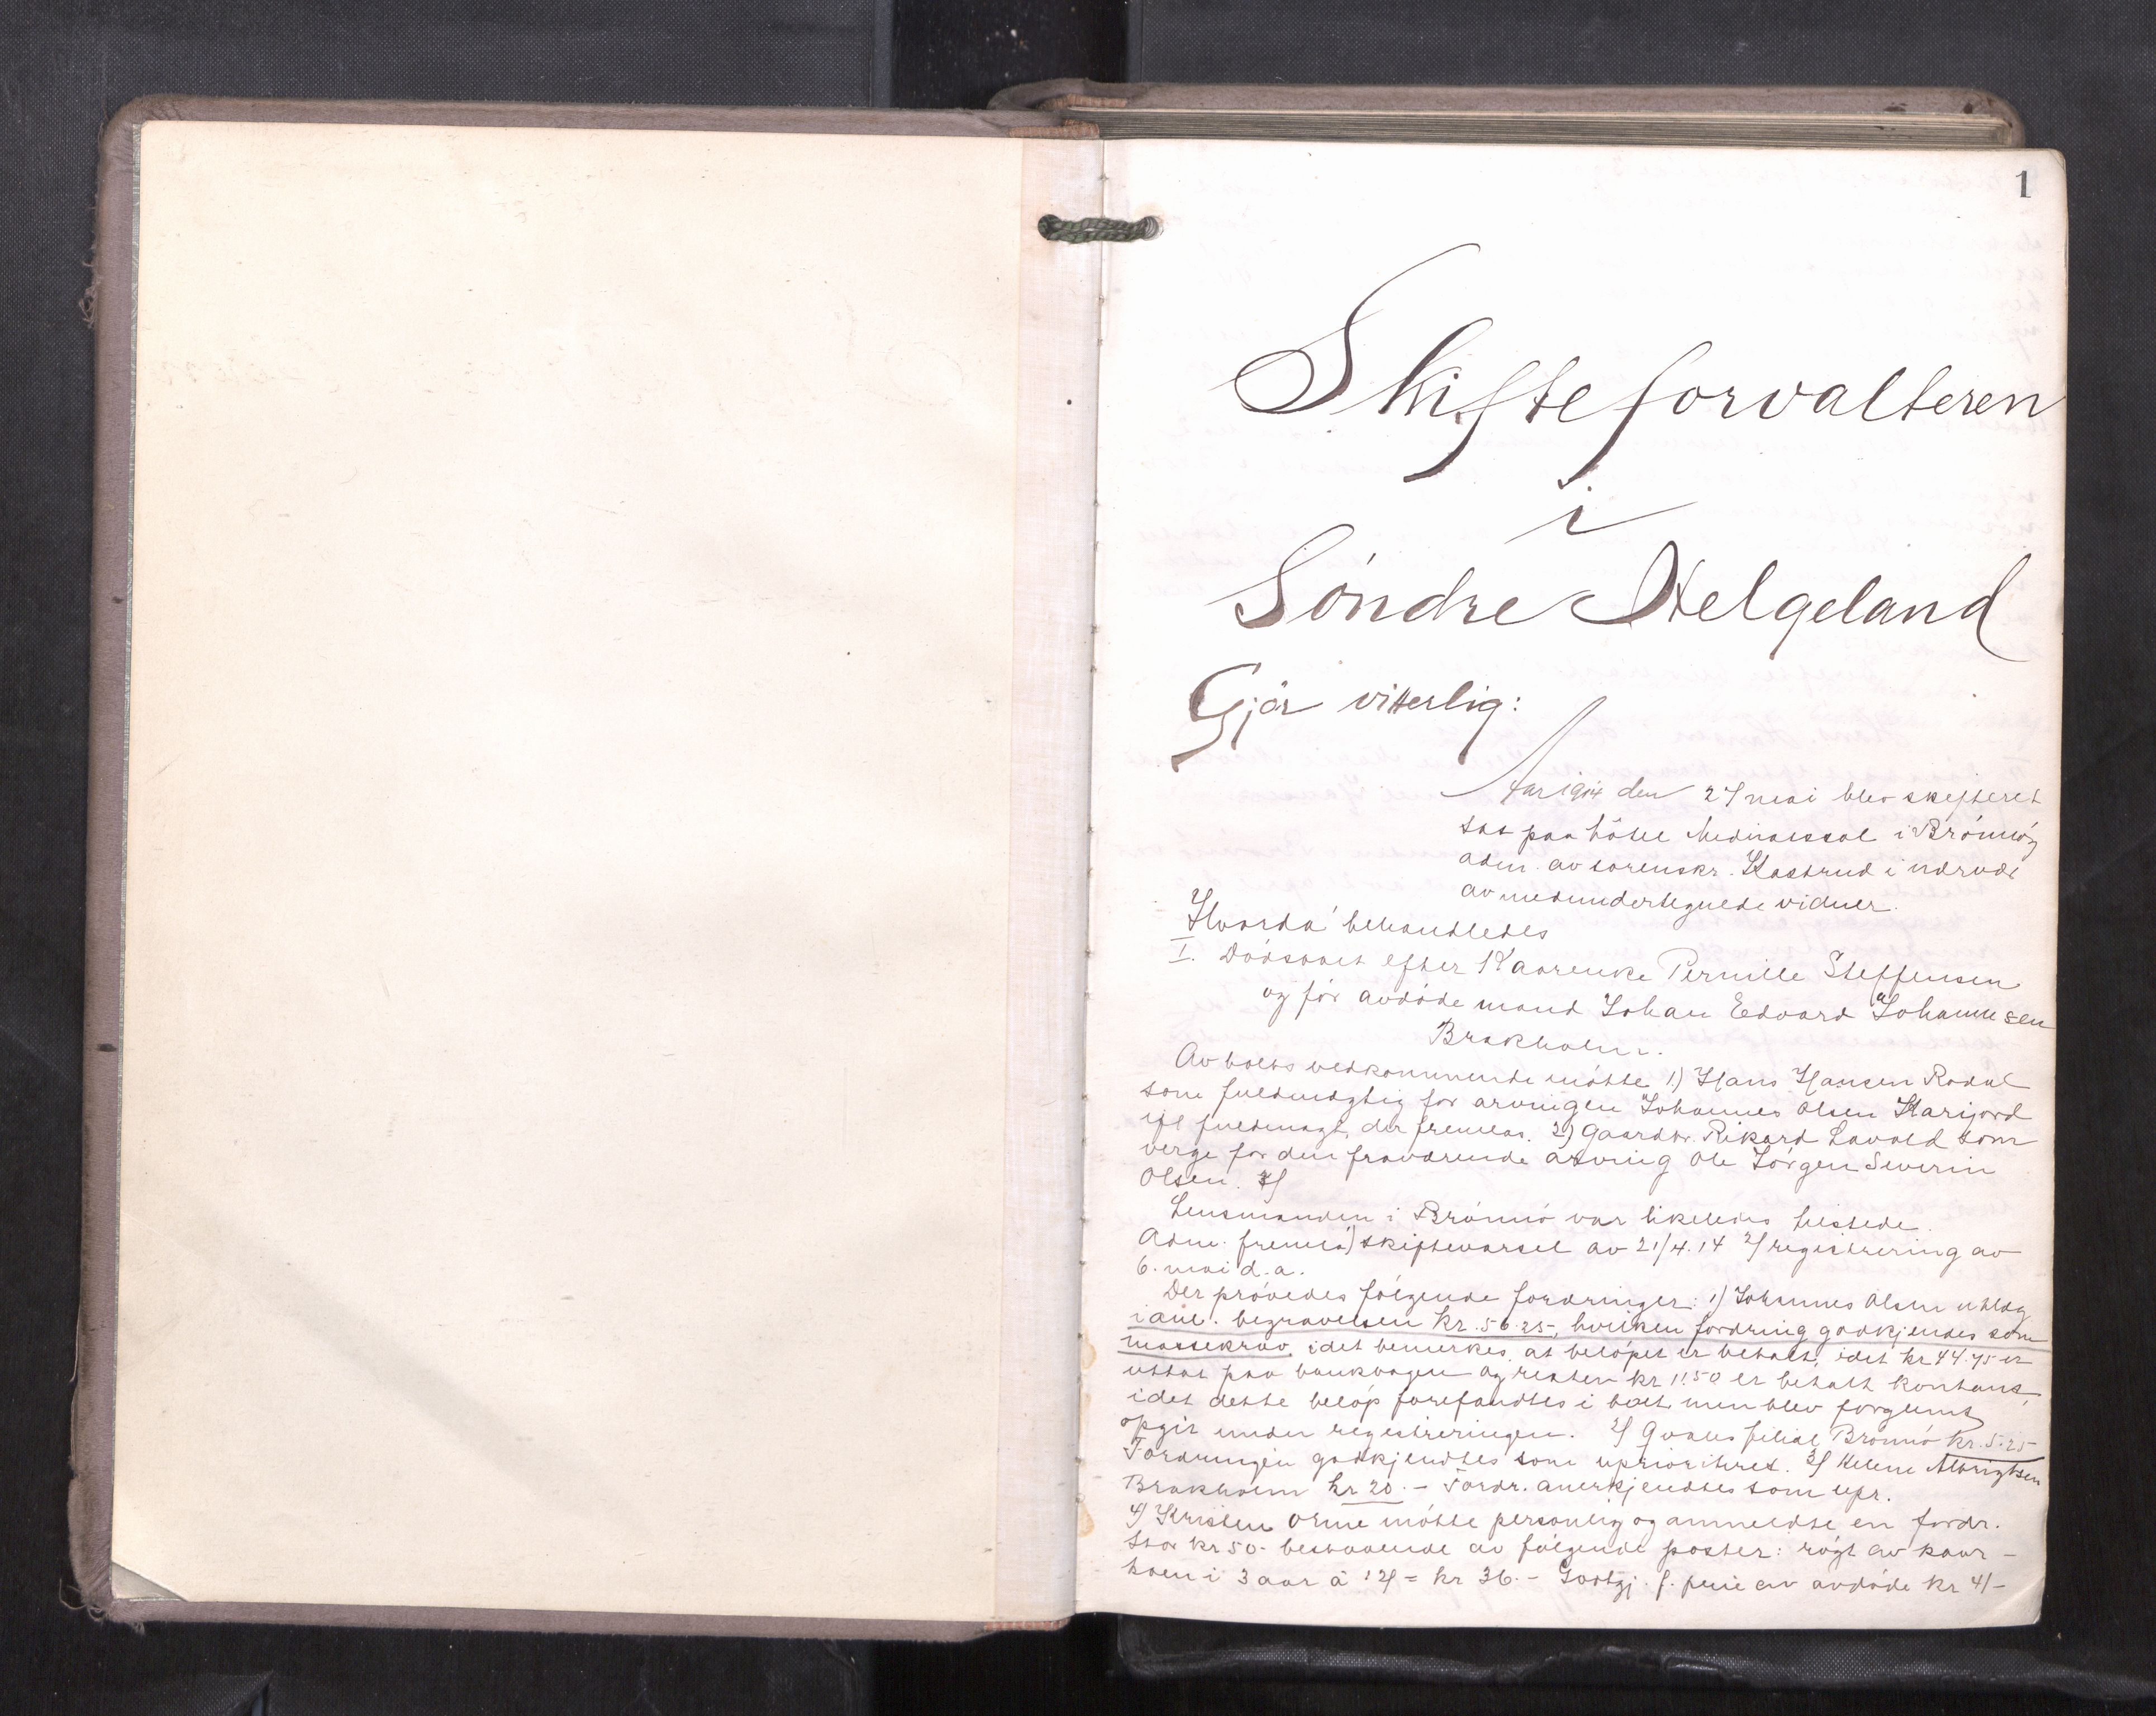 1
Skifteforvalteren
i
Söndre Helgeland
Gjör vitterlig:
Aar 1914 den 27 mai blev skifteret
sat paa hôtel Mednaessal i Brönnöy
adm. av sorenskr. Kastrud i nærvær
av medundertegnede vidner.
Hvorda' behandledes
I. Dödsboet efter Kaarenke Pernille Steffensen
og för avdöde mand Johan Edvard Johannesen
Brakholm.
Av boets vedkommende mötte 1) Hans Hansen Rodal
som fuldmægtig for arvingen Johannes Olsen Horsfjord
ifl fuldmagt, der fremlas. 2) Gaardbr. Rikard Lavold som
verge for den fraværende arving Ole Jörgen Severin
Olsen.
Lensmanden i Brönnö var likeledes tilstede.
Adm. fremla 1) skiftevarsel av 21/4.14 2) registrering av
6. mai d.a.
Der prövedes fölgende fordringer: 1) Johannes Olsen utlæg
i anl. begravelsen kr. 56.25, hvilken fordring godkjendes som
massekrav, idet bemerkes, at belöpet er betalt, idet kr 44.75 er
uttat paa bankbogen og resten kr 11.50 er betalt kontant,
idet dette belöp forefandtes i boet, men blev forglemt
opgit under registreringen. 2) Qvales filial Brönnö kr. 5.25
Fordringen godkjendtes som uprioritert. 3) Helene Albrigtsen
Brakholm kr 20.- Fordr. anerkjendtes som upr.
4) Kristen Orme mötte personlig og anmeldte en fordr.
stor kr 50- bestaaende av fölgende poster: rögt av kaar-
koen i 3 aar à 12 = kr 36.- Godtgj. f. pleie av avdöde kr 4/-